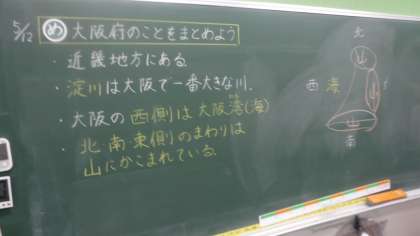 5/12 め 大阪府のことをまとめよう
・近畿地方にある
・淀川は大阪で一番大きな川.
・大阪の西側は大阪湾(海)
・北南東側のまわりは
山にかこまれている.
北
西 海
山
南